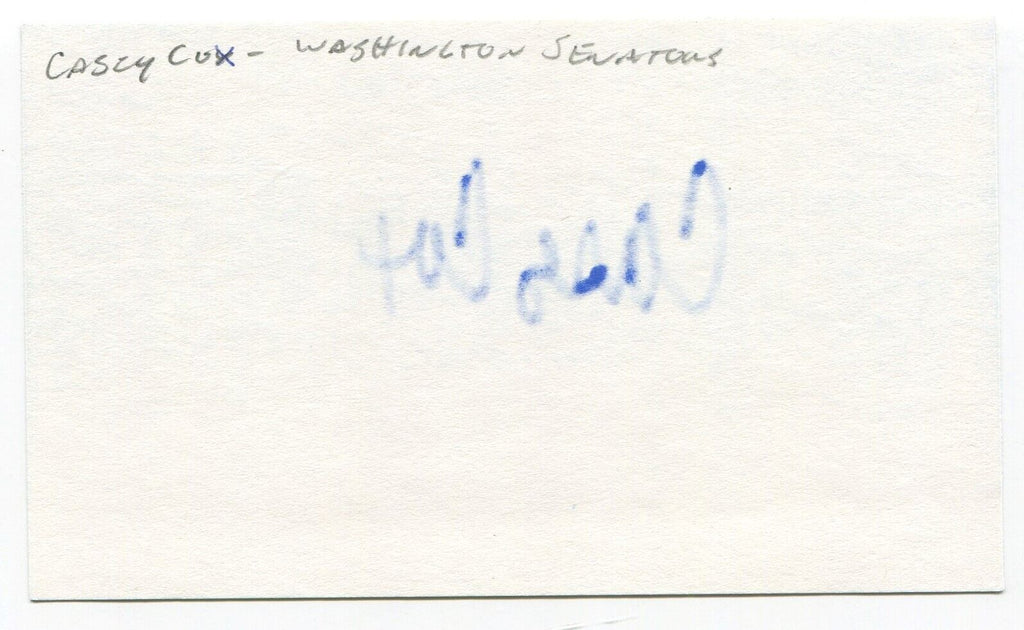 Casey Cox - Washington Senators
Casey Cox